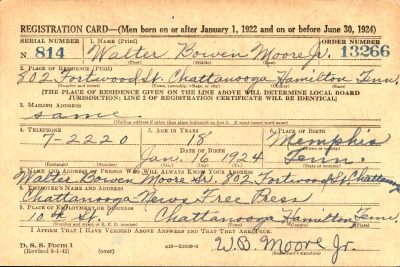 REGISTRATION CARD—(Men born on or after January 1, 1922 and on or before June 30, 1924)
SERIAL NUMBER 1. NAME (Print) ORDER NUMBER
N 814 Walter Bowen Moore Jr. 13266
(First) (Middle) (Last)
2. PLACE OF RESIDENCE (Print)
802 Fortwood St. Chattanooga Hamilton Tenn.
(Number and street) (Town, township, village, or city) (County) (State)
[THE PLACE OF RESIDENCE GIVEN ON THE LINE ABOVE WILL DETERMINE LOCAL BOARD
JURISDICTION; LINE 2 OF REGISTRATION CERTIFICATE WILL BE IDENTICAL]
3. MAILING ADDRESS
same
[Mailing address if other than place indicated on line 2. If same insert word same]
4. TELEPHONE 5. AGE IN YEARS 6. PLACE OF BIRTH
7-2220 18 Memphis
DATE OF BIRTH (Town or county)
Jan. 16 1924 Tenn.
(Exchange) (Number) (Mo.) (Day) (Yr.) (State or country)
7. NAME AND ADDRESS OF PERSON WHO WILL ALWAYS KNOW YOUR ADDRESS
Walter Bowen Moore Sr. 802 Fortwood St. Chattanooga
8. EMPLOYER'S NAME AND ADDRESS
Chattanooga News Free Press
9. PLACE OF EMPLOYMENT OR BUSINESS
10th St. Chattanooga Hamilton Tenn.
(Number and street or R. F. D. number) (Town) (County) (State)
I AFFIRM THAT I HAVE VERIFIED ABOVE ANSWERS AND THAT THEY ARE TRUE.
D. S. S. Form 1
(Revised 6-1-42) (over) W.B. Moore Jr.